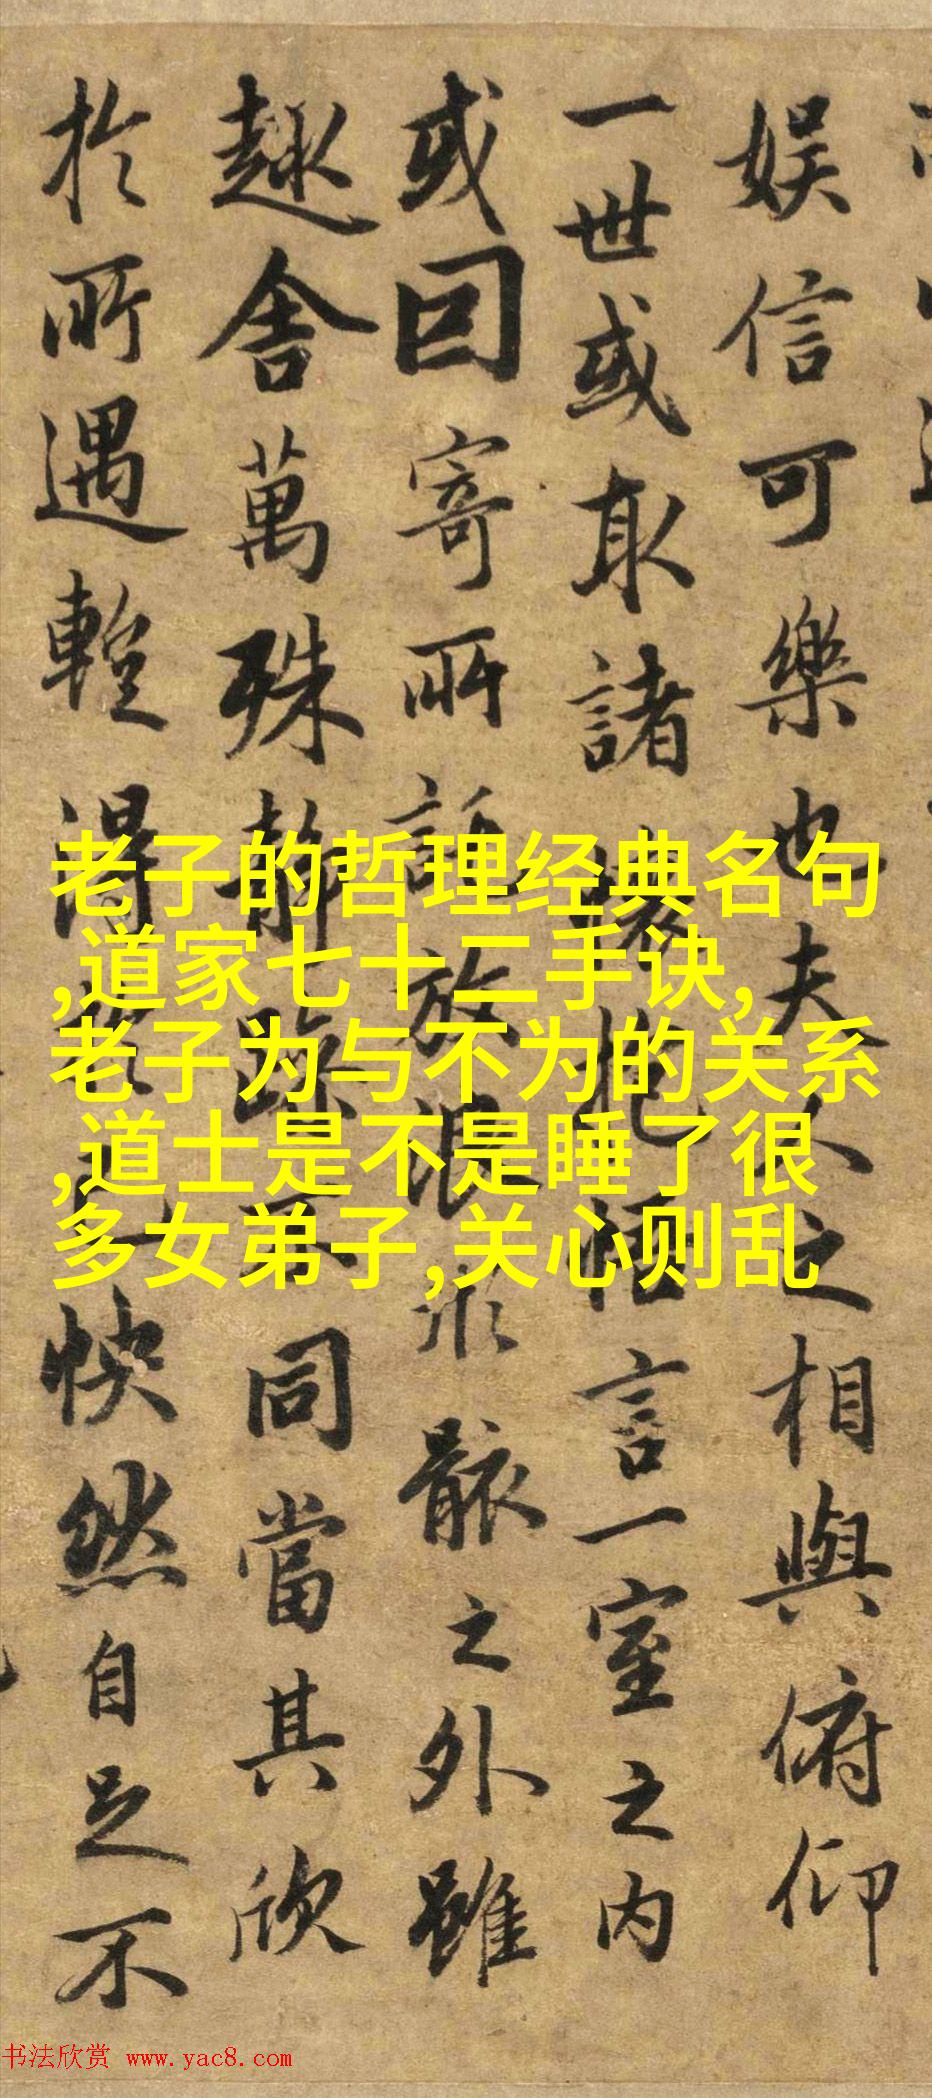 娱信可樂也夫人之相與俯仰
一世或取諸懷抱悟言一室之内
或因寄所託放浪形骸之外雖
趣舍萬殊静躁不同當其欣
於所遇蹔得於己快然自足不
老子的哲理经典名句
,道家七十二手诀,
老子为与不为的关系
,道士是不是睡了很
多女弟子,关心则乱
书法欣赏 www.yac8.com